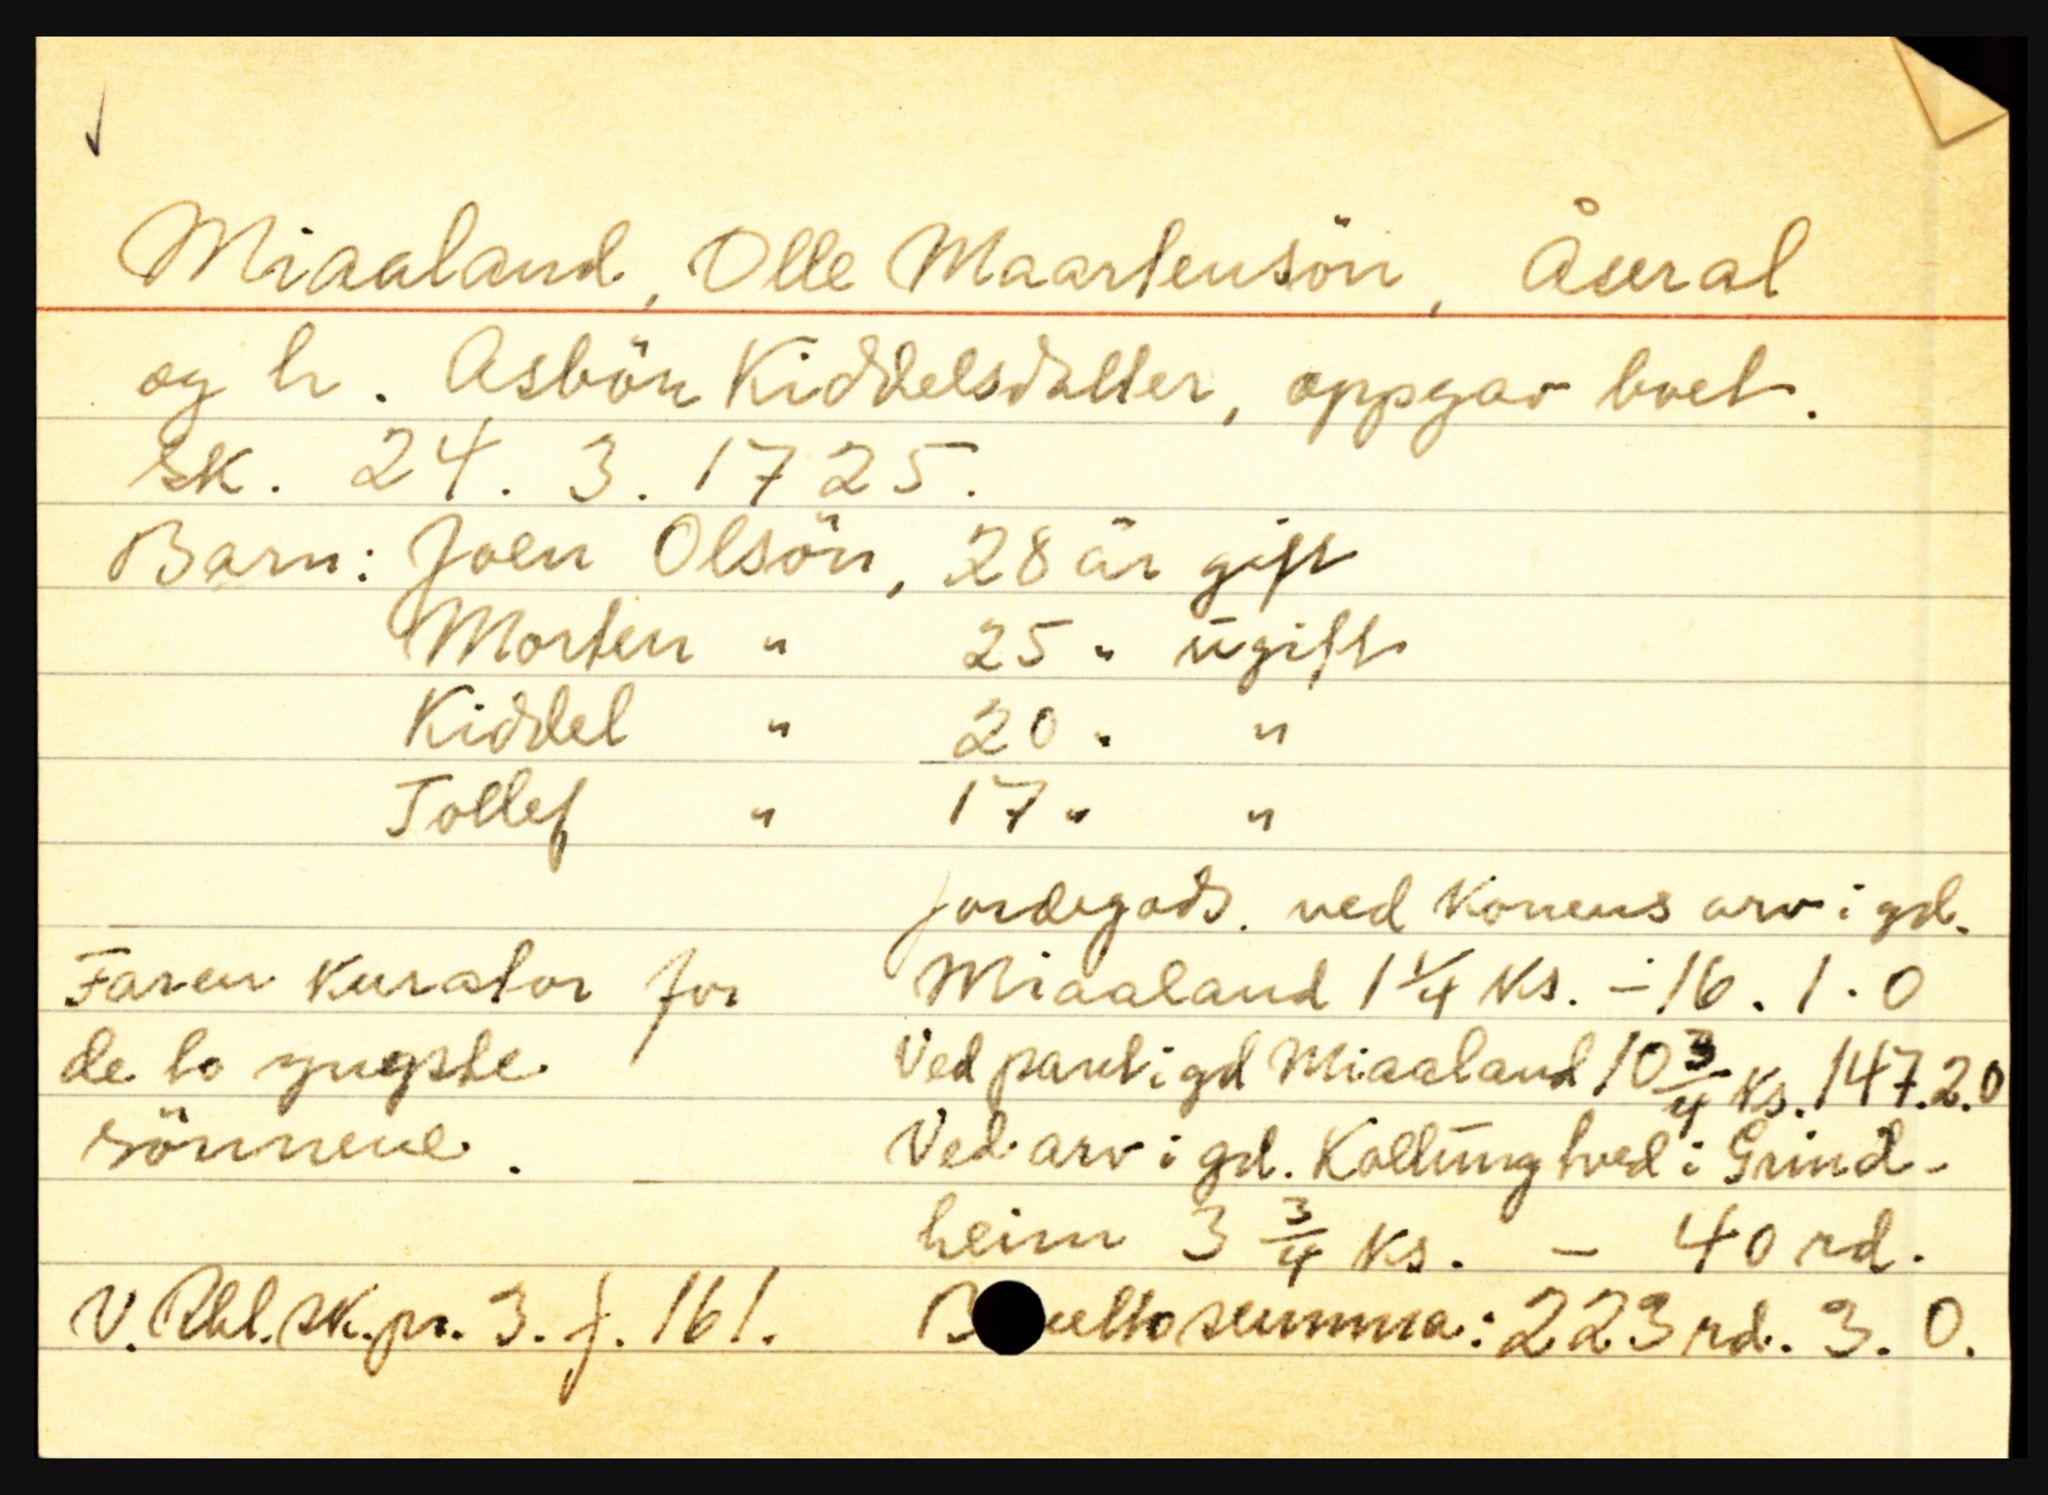 Miaaland, Olle Maartensön, Åseral
og h. Asbön Kiddelsdatter, oppgav boet.
sk. 24. 3. 1725.
Barn: Joen Olsön, 28 år gift
Morten " 25 " ugift
Kiddel " 20 " "
Tollef " 17 " "
Jordegods. ved konens arv i gd.
Miaaland 1 1/4 ks. - 16. 1. 0
Ved pant i gd Miaaland 10 3/4 ks. 147.2.0
Ved arv i gd. Kollungtved i Grind-
heim 3 3/4 ks. - 40 rd.
Bruttosumma: 223 rd. 3. 0.
Faren kurator for
de to yngste
sönnene.
V. Rbl. sk.pr. 3. f. 161.